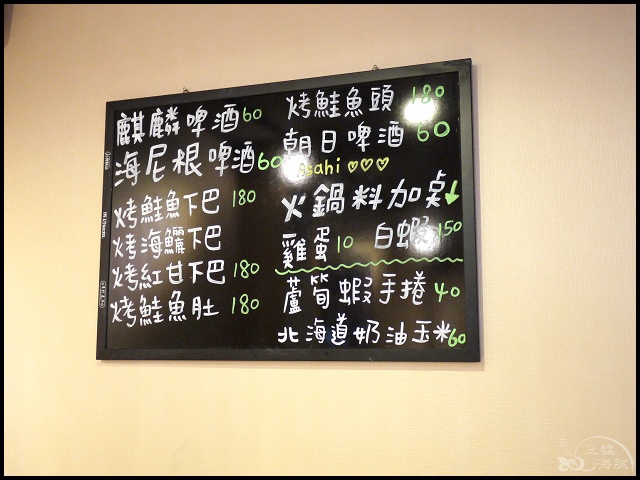 麒麟啤酒60
海尼根啤酒60
烤鮭魚下巴 180
烤海鱺下巴
烤紅甘下巴 180
烤鮭魚肚 180
烤鮭魚頭 180
朝日啤酒 60
Asahi ♡♡♡
火鍋料加桌↓
雞蛋10 白蝦150
蘆筍蝦手捲 40
北海道奶油玉米60